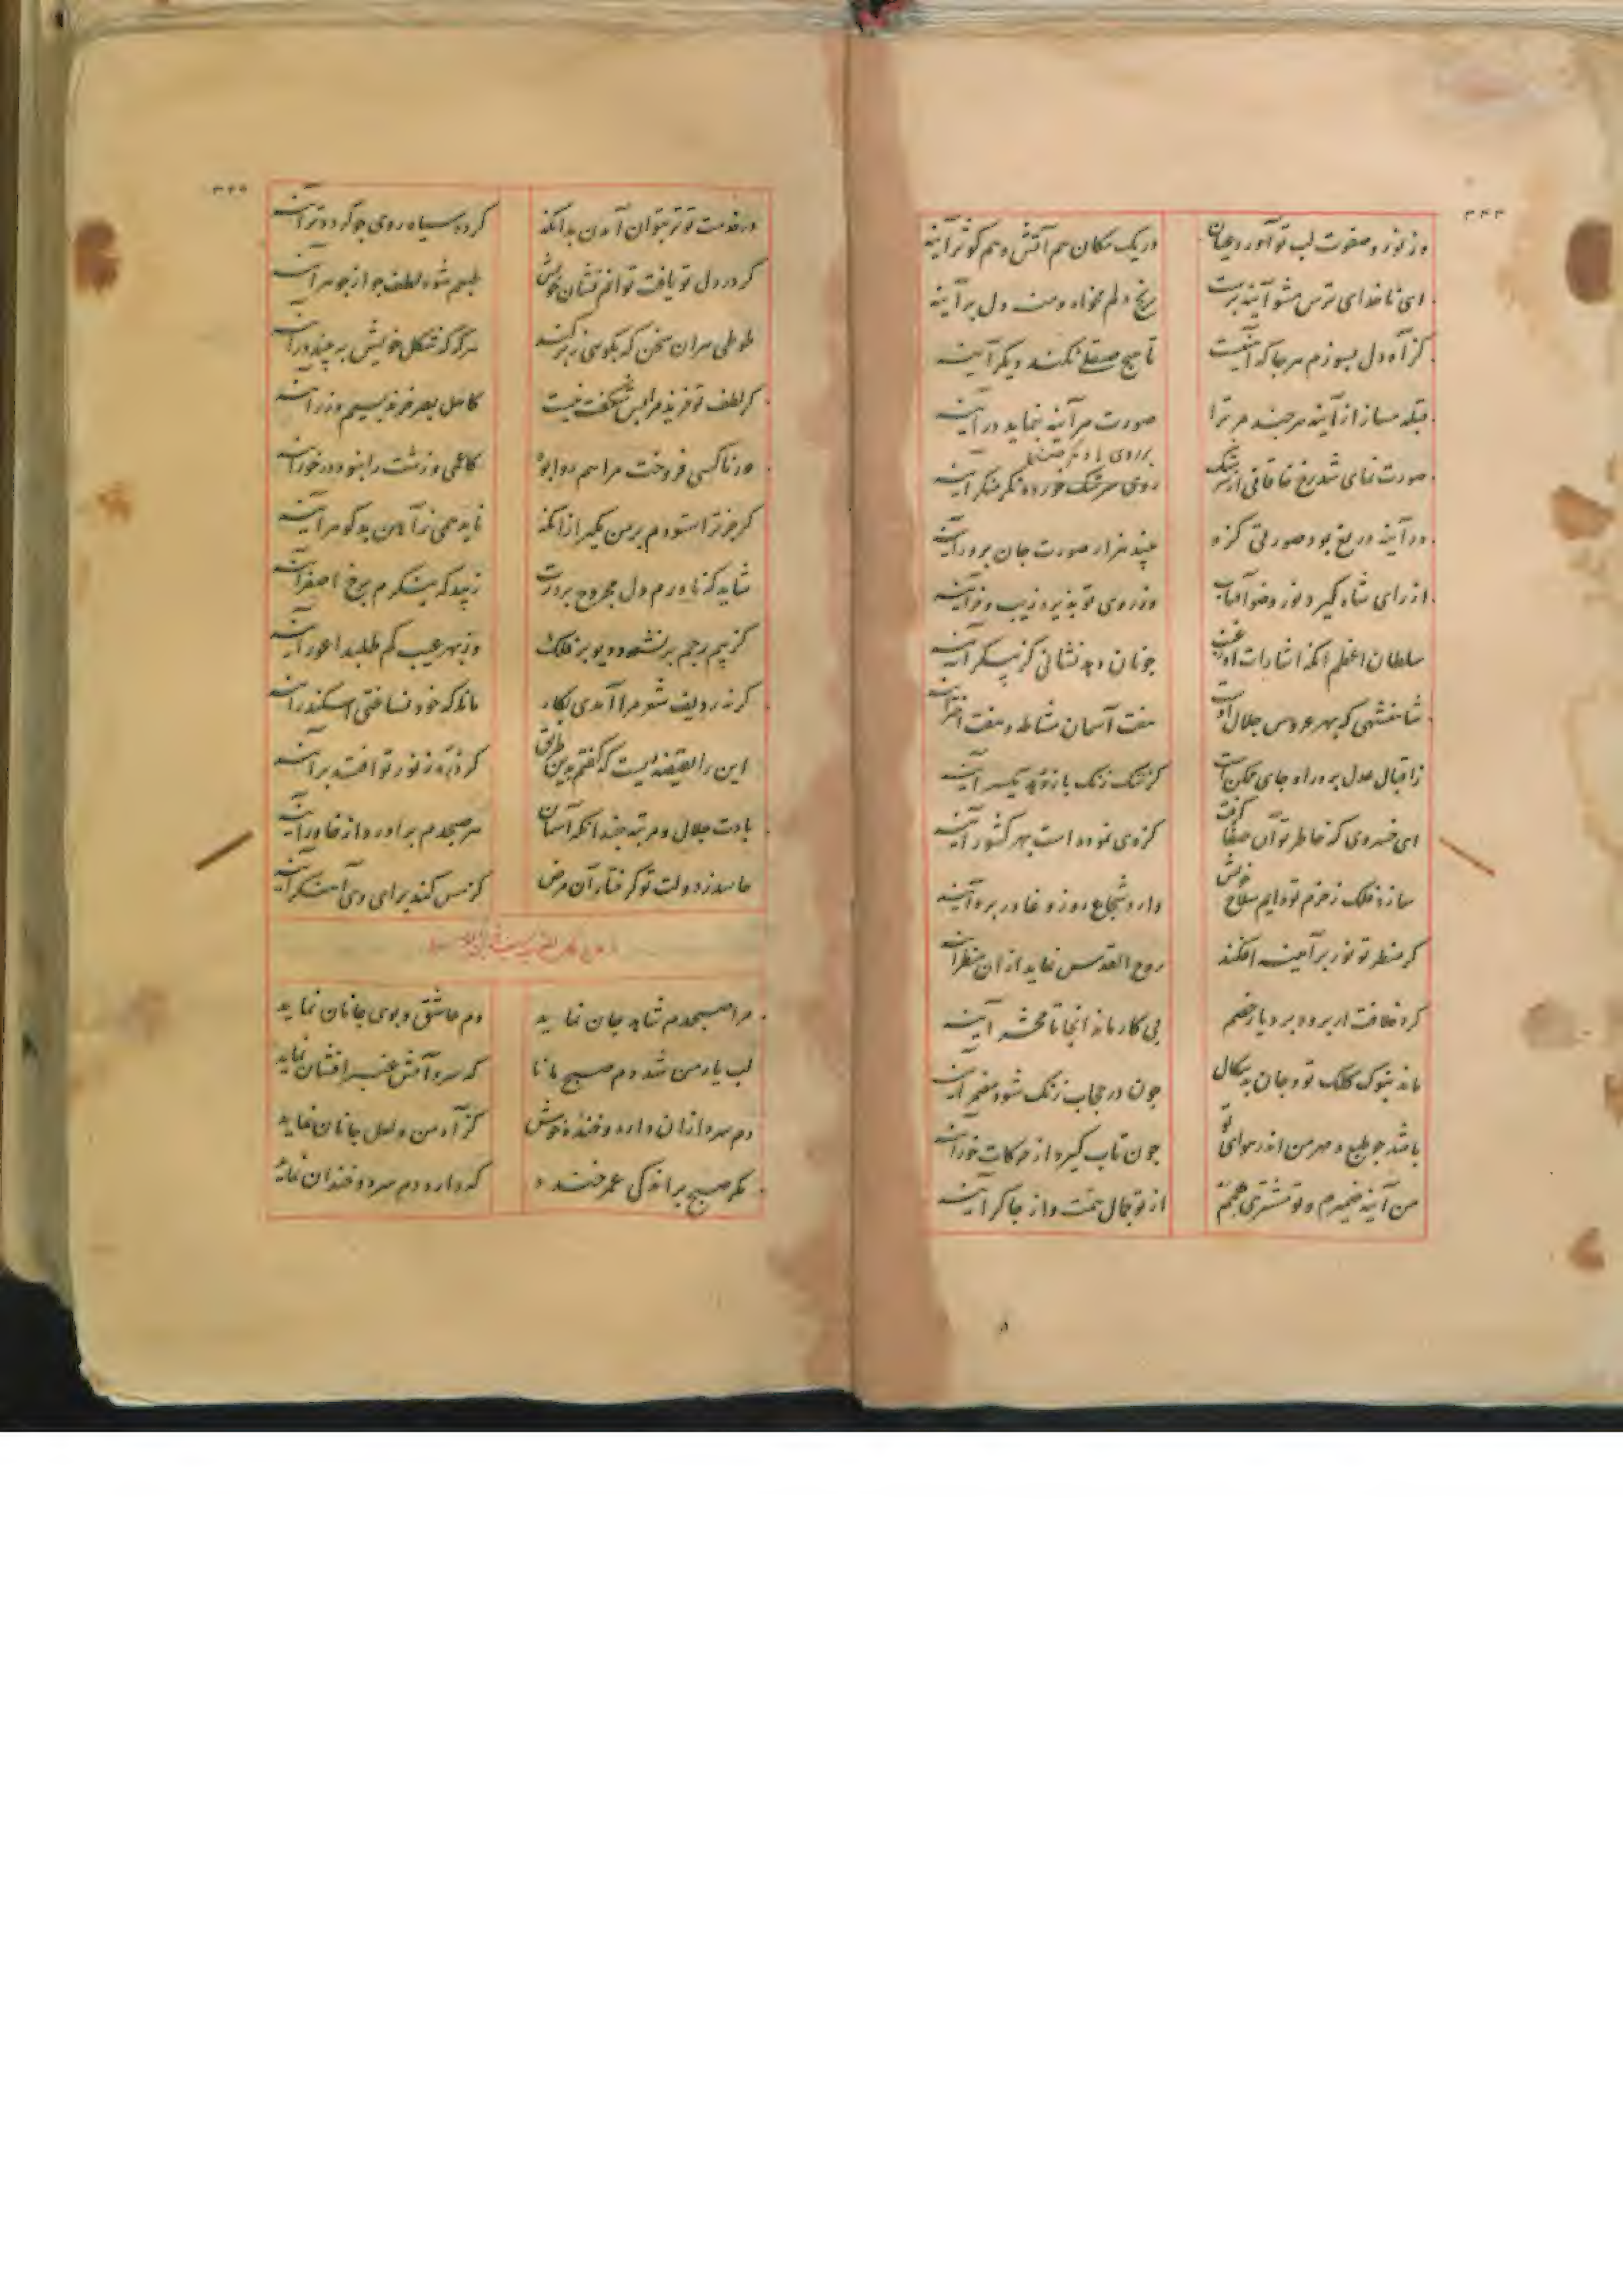 ۳۴۴
وز نور و صفوت لب تو آورد عیان در یک مکان هم آتش و هم کوثر آینه
ای ناخدای ترس مشو آینه پرست رنج دلم مخواه و منه دل بر آینه
کز آه دل بسوزم هر جا که آهنیست تا هیچ صیقلی نکند دیگر آینه
قبله مساز از آینه هر چند مر ترا صورت هر آینه بنماید در آینه
صورت نمای شد رخ خاقانی از سرشک
روی سرشک خورده نگر منگر آینه
در آینه دریغ بود صورتی کزو چند هزار صورت جان پرور آینه
از رای شاه گیرد نور و ضو آفتاب وز روی تو پذیرد زیب و فر آینه
سلطان اعظم آنکه اشارات او ز غیب چونان دهد نشانی کز پیکر آینه
شاهنشهی که بهر عروس جلال اوست هفت آسمان مشاطه و هفت اختر آینه
ز اقبال عدل پرور او جای ممکنست کز ننگ زنگ باز رهد یکسر آینه
ای خسروی که خاطر تو آن صفا گرفت کزوی نموده است بهر کشور آینه
سازد فلک ز حزم تو دایم سلاح خویش دارد شجاع روز وغا در بر آینه
گر منظر تو نور بر آیینه افکند روح القدس نماید از آن منظر آینه
گرد خلافت ار برود بر دیار خصم بی کار ماند آنجا تا محشر آینه
ماند بنوک کلک تو و جان بدسگال چون در حجاب زنگ شود مضمر آینه
باشد چو طبع و مهر من اندر هوای تو چون تاب گیرد از حرکات خور آینه
من آینه ضمیرم و تو مشتری همم از تو جمال همت و از چاکر آینه
۳۴۵
در خدمت تو تر نتوان آمدن بدانک گردد سیاه روی چو گردد تر آینه
گر در دل تو یافت توانم نشان خویش طبعم شود لطف چو از جوهر آینه
طوطی هر آن سخن که بگویی ز بر کند هرگه که شکل خویش ببیند در آینه
گر لطف تو خرید مرا بس شگفت نیست کاهل بصر خرند بسیم و زر آینه
ور ناکسی فروخت مرا هم روا بود کاعمی و زشت را نبود در خور آینه
گر جز ترا ستودم بر من مگیر از آنک ناید همی ز آهن بدگوهر آینه
شاید که ناورم دل مجروح بر درت زیبد که ننگرم برخ اصفر آینه
کز بیم رجم بر نشود دیو بر فلک وز بهر عیب کم طلبد اعور آینه
گر نه ردیف شعر مرا آمدی بکار مانا که خود نساختی اسکندر آینه
این را نقیضه ایست که گفتم بدین طریق
بادت جلال و مرتبه چندانکه آسمان هر صبحدم برآورد از خاور آینه
حاسد ز دولت تو گرفتار آن مرض کز مس کند برای وی آهنگر آینه
مرا صبحدم شاهد جان نماید دم عاشق و بوی جانان نماید
لب یار من شد دم صبح مانا که سرد آتش عنبر افشان نماید
دم سرد از آن دارد و خنده خوش کز آه من و لعل جانان نماید
مگر صبح بر اندکی عمر خندد که دارد دم سرد و خندان نماید